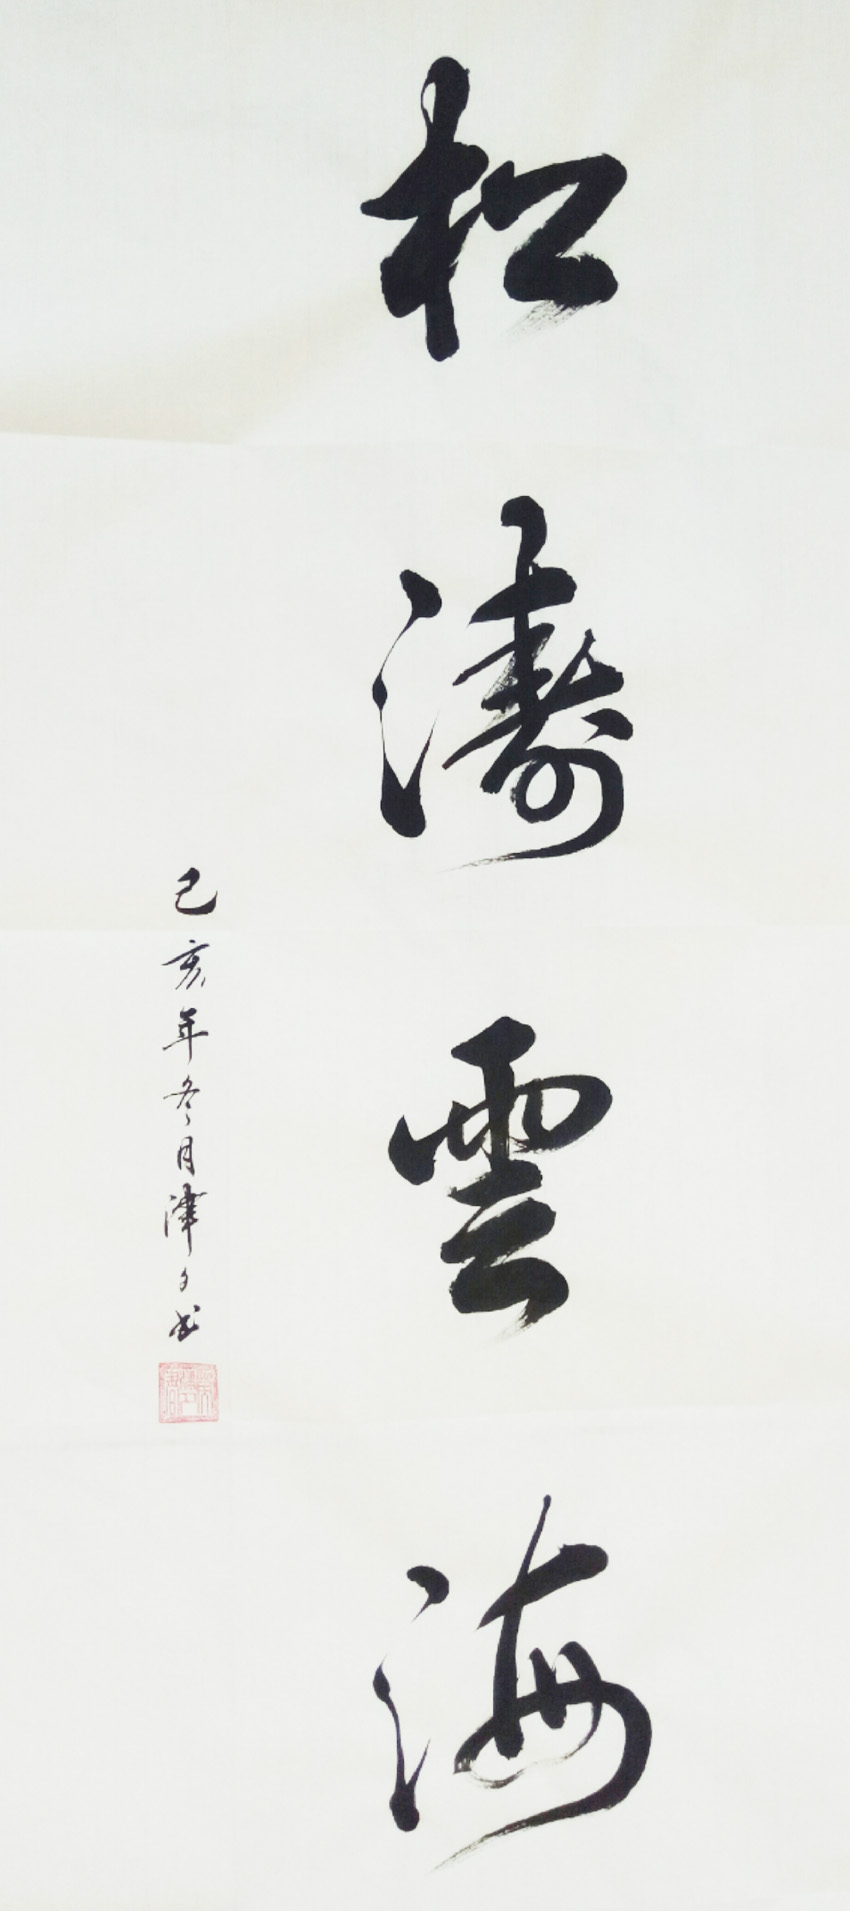 松濤雲海
己亥年冬月津夕书